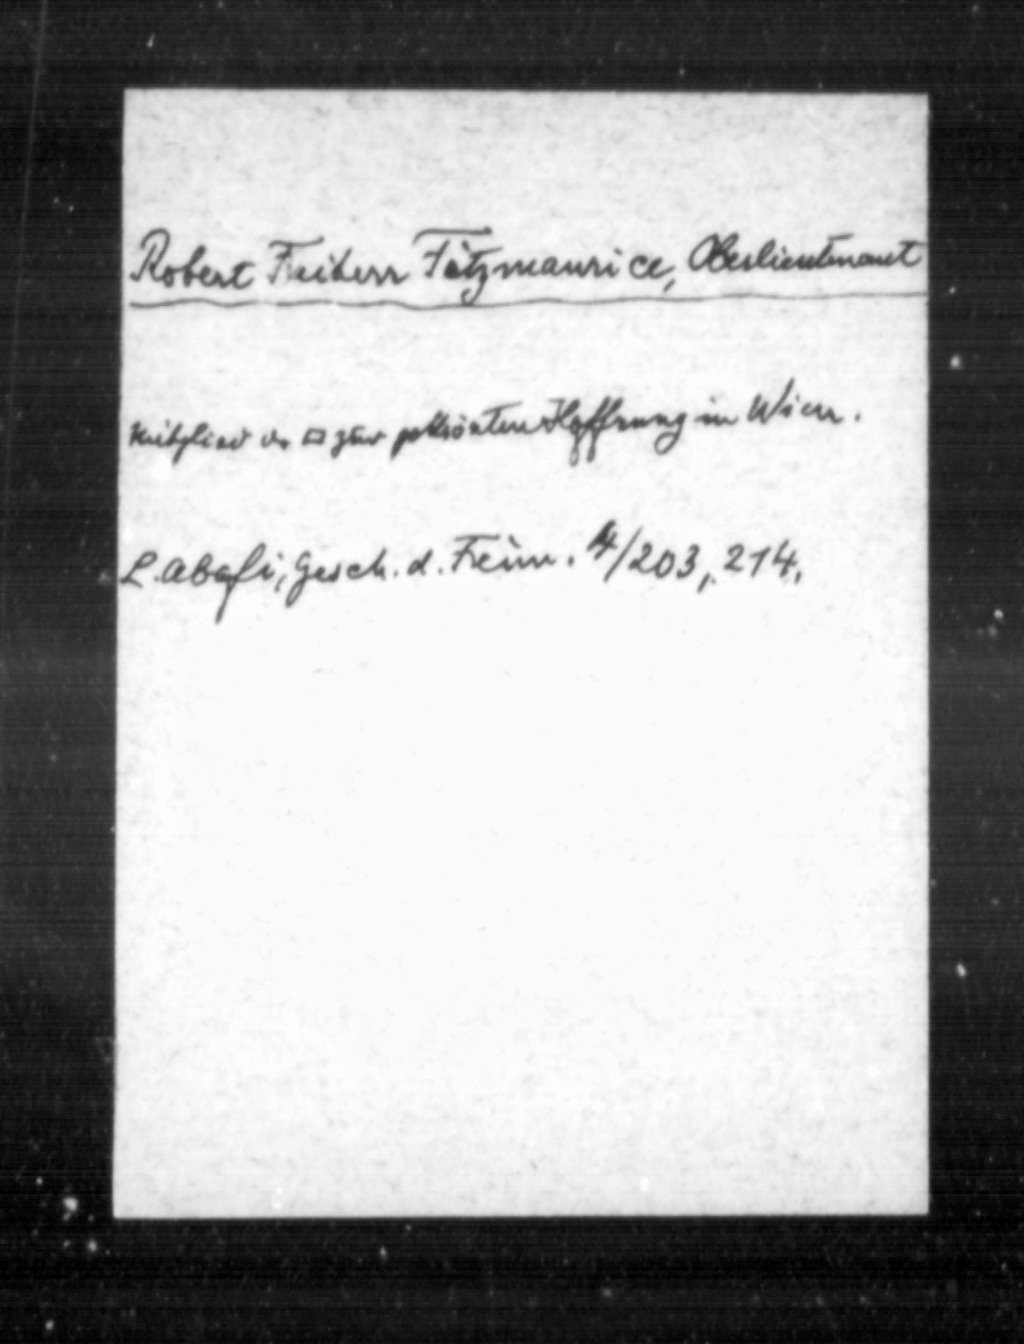 Robert Freiherr Fitzmaurice, Oberlieutenant
Mitglied d. □ zur gekrönten Hoffnung in Wien.
L. Abafi, Gesch. d. Freim. 4/203, 214,